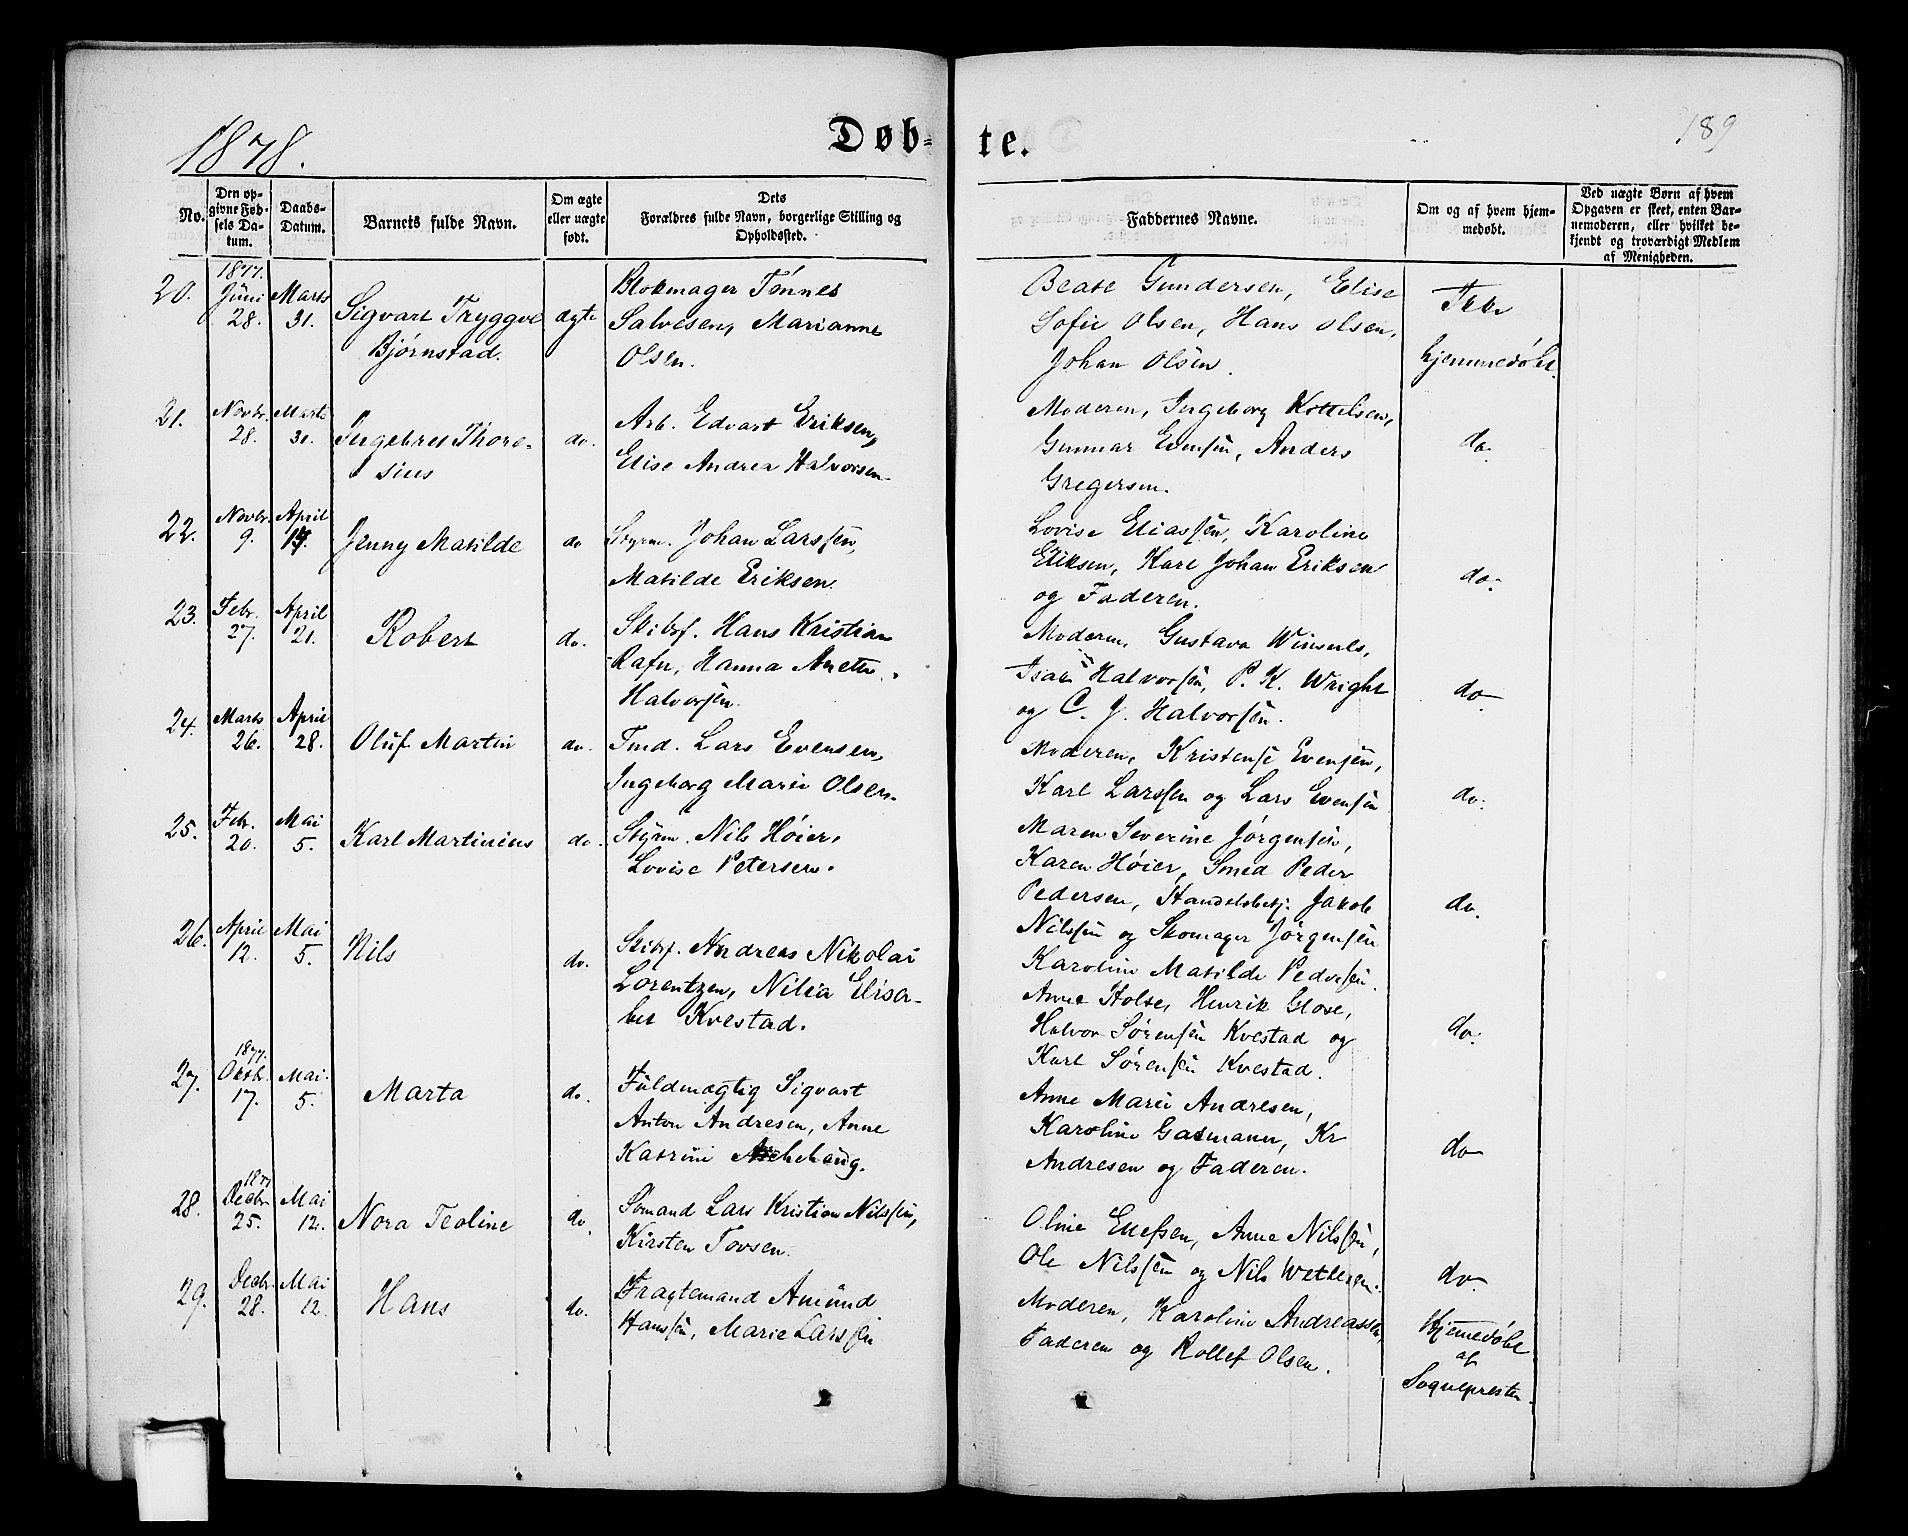 1878.
Døb-te.
189
No.
Den opgivne Fødsels Datum.
Daabs-Datum.
Barnets fulde Navn.
Om ægte eller uægte født.
Dets Forældres fulde Navn, borgerlige Stilling og Opholdssted.
Faddernes Navne.
Om og af hvem hjemmedøbt.
Ved uægte Børn af hvem Opgaven er skeet, enten Barnemoderen, eller hvilket bekjendt og troværdigt Medlem af Menigheden.
20.
1877. Juni 28.
Marts 31.
Sigvart Tryggve
Bjørnstad.
ægte
Blokmager Tønnes
Salvesen, Marianne
Olsen.
Beate Gundersen, Elise
Sofie Olsen, Hans Olsen,
Johan Olsen.
Ikke
hjemmedøbt.
21.
Novbr. 28.
Marts 31.
Ingebret Thore-
sius
do.
Arb. Edvart Eriksen,
Elise Andrea Halvorsen
Moderen, Ingeborg Kittelsen,
Gunnar Evensen, Anders
Gregersen.
do.
22.
Novbr. 9.
April
Jenny Matilde
do
Styrm. Johan Larssen,
Matilde Eriksen
Lovise Eliassen, Karoline
Eriksen, Karl Johan Eriksen
og Faderen.
do.
23.
Febr. 27.
April 21.
Robert
do.
Skibsf. Hans Kristian
Rafn, Hanna Anette
Halvorsen.
Moderen, Gustava
Halvorsen, P. K. Wright
og C. J. Halvorsen.
do
24.
Marts 26.
April 28.
Oluf Martin
do.
Tmd. Lars Evensen,
Ingeborg Marie Olsen.
Moderen, Kristense Evensen,
Karl Larssen og Lars Evensen
do.
25.
Febr. 20.
Mai 5.
Karl Martinius
do.
Styrm. Nils Høier,
Lovise Petersen.
Maren Severine Jørgensen,
Karen Høier, Smed Peder
Pedersen, Handelsbetj. Jakob
Nilssen og Skomager Jørgensen
do.
26.
April 12.
Mai 5.
Nils
do.
Skibsf. Andreas Nikolai
Lorentzen, Nilia Elisa-
bet Kvestad.
Karoline Matilde Pedersen.
Anne Holte, Henrik Glose,
Halvor Sørensen Kvestad og
Karl Sørensen Kvestad.
do.
27.
1877. Oktbr. 17.
Mai 5.
Marta
do.
Fuldmægtig Sigvart
Anton Andresen, Anne
Katrine Aschehoug.
Anne Marie Andresen,
Karoline Gasmann, Kr
Andresen og Faderen.
do
28.
1877 Decbr 25.
Mai 12.
Nora Teoline
do.
Sømand Lars Kristian Nilssen,
Kirsten Tovsen.
Oline Ellefsen, Anne Nilssen,
Ole Nilssen og Nils
do.
29.
Decbr. 28.
Mai 12.
Hans
do.
Fragtemand Amund
Hanssen, Marie Larssen
Moderen, Karoline Andreassen,
Faderen og Rollef Olsen.
Hjemmedøbt
af
Sognepresten.